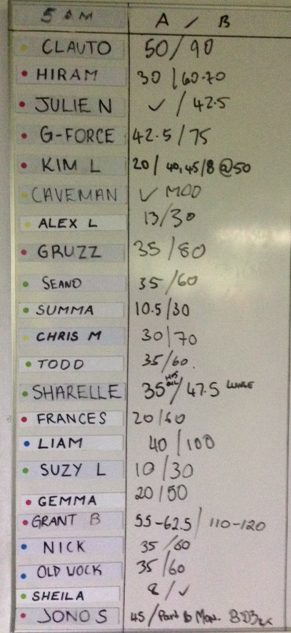 5 AM A / B
CLAUTO 50/90
HIRAM 30/60-70
JULIE N ✓/42.5
G-FORCE 42.5/75
KIM L 20/40,45/8@50
CAVEMAN ✓ MOD
ALEX L 13/30
GRUZZ 35/80
SEANO 35/60
SUMMA 10.5/30
CHRIS M 30/70
TODD 35/60
SHARELLE 35/47.5 LUNGE
FRANCES 20/60
LIAM 40/100
SUZY L 10/30
GEMMA 20/50
GRANT B 55-62.5/110-120
NICK 35/60
OLD VOCK 35/60
SHEILA 8/✓
JONO S 45/Part B Mon.